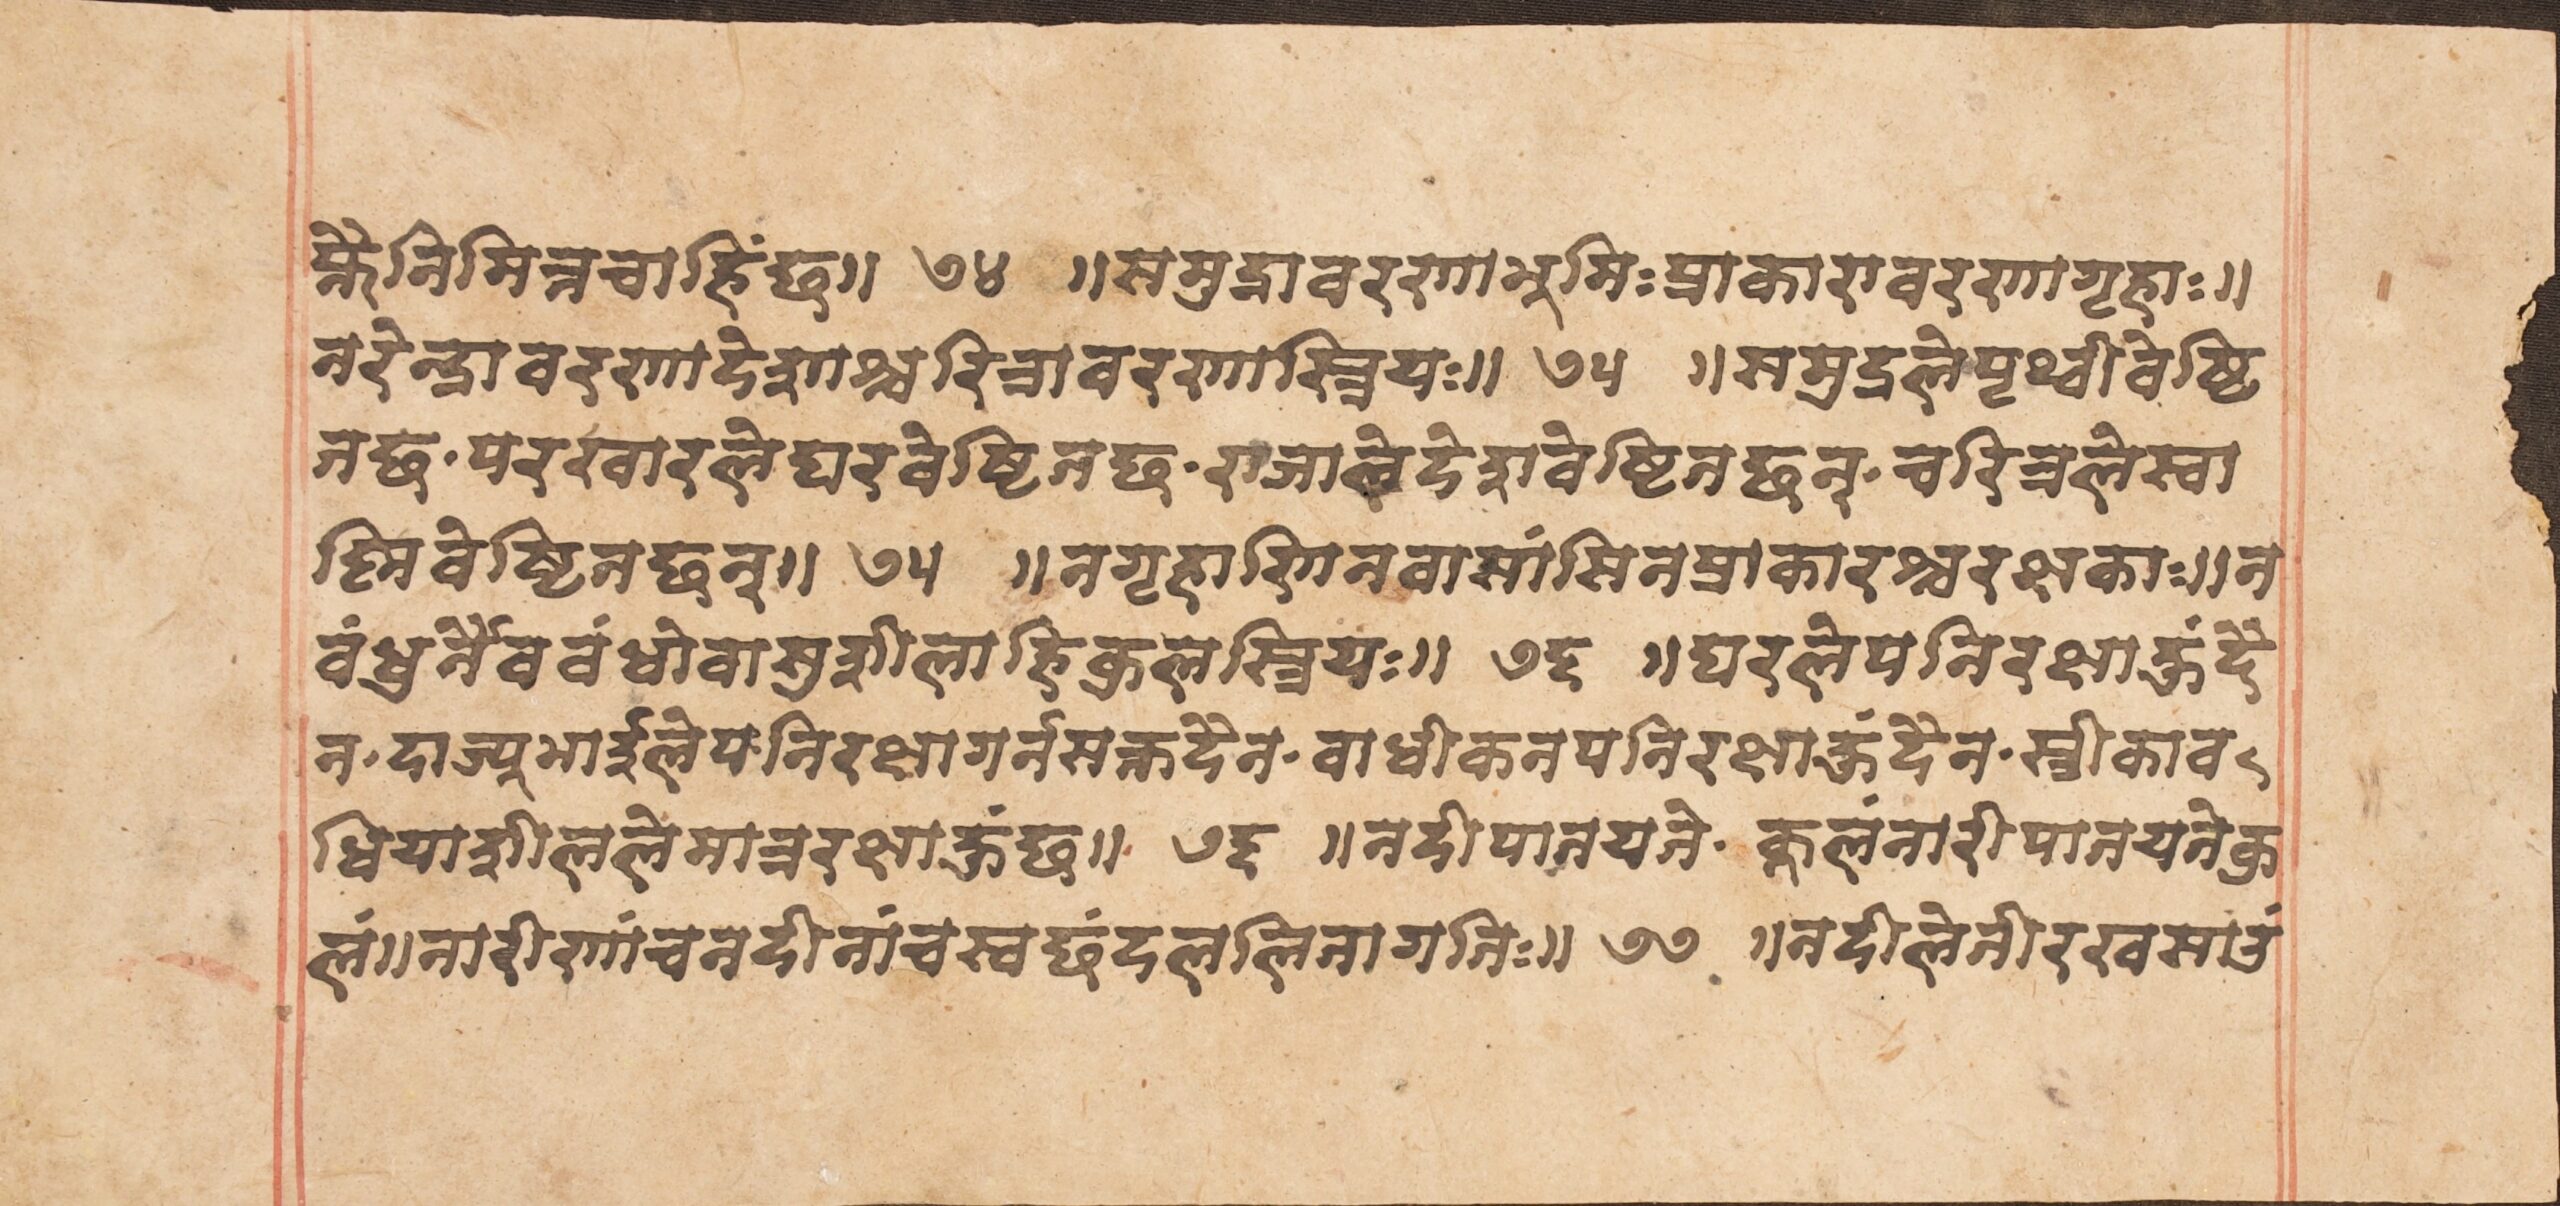 ह्नैनिमित्तचाहिंछ॥ ७४ ॥समुद्रावरणाभूमिःप्राकारावरणागृहाः॥
नरेन्द्रावरणादेशाश्चरित्रावरणास्त्रियः॥ ७५ ॥समुद्रलेपृथ्वीवेष्टि
तछ·परखारलेघरवेष्टितछ·राजालेदेशवेष्टितछन्·चरित्रलेस्वा
स्निवेष्टितछन्॥ ७५ ॥नगृहाणिनवासांसिनप्राकारश्चरक्षकाः॥न
वंधुर्नैववंधोवासुशीलाहिकुलस्त्रियः॥ ७६ ॥घरलेपनिरक्षाहुंदै
न·दाज्युभाईलेपनिरक्षागर्नसक्तदैन·वाधीकनपनिरक्षाहुंदैन·स्त्रीकाव
धियाशीललेमात्ररक्षाहुंछ॥ ७६ ॥नदीपातयते· कूलंनारीपातयतेकु
लं॥नारीणांचनदीनांचस्वछंदललितागतिः॥ ७७ ॥नदीलेतीरखसाउं